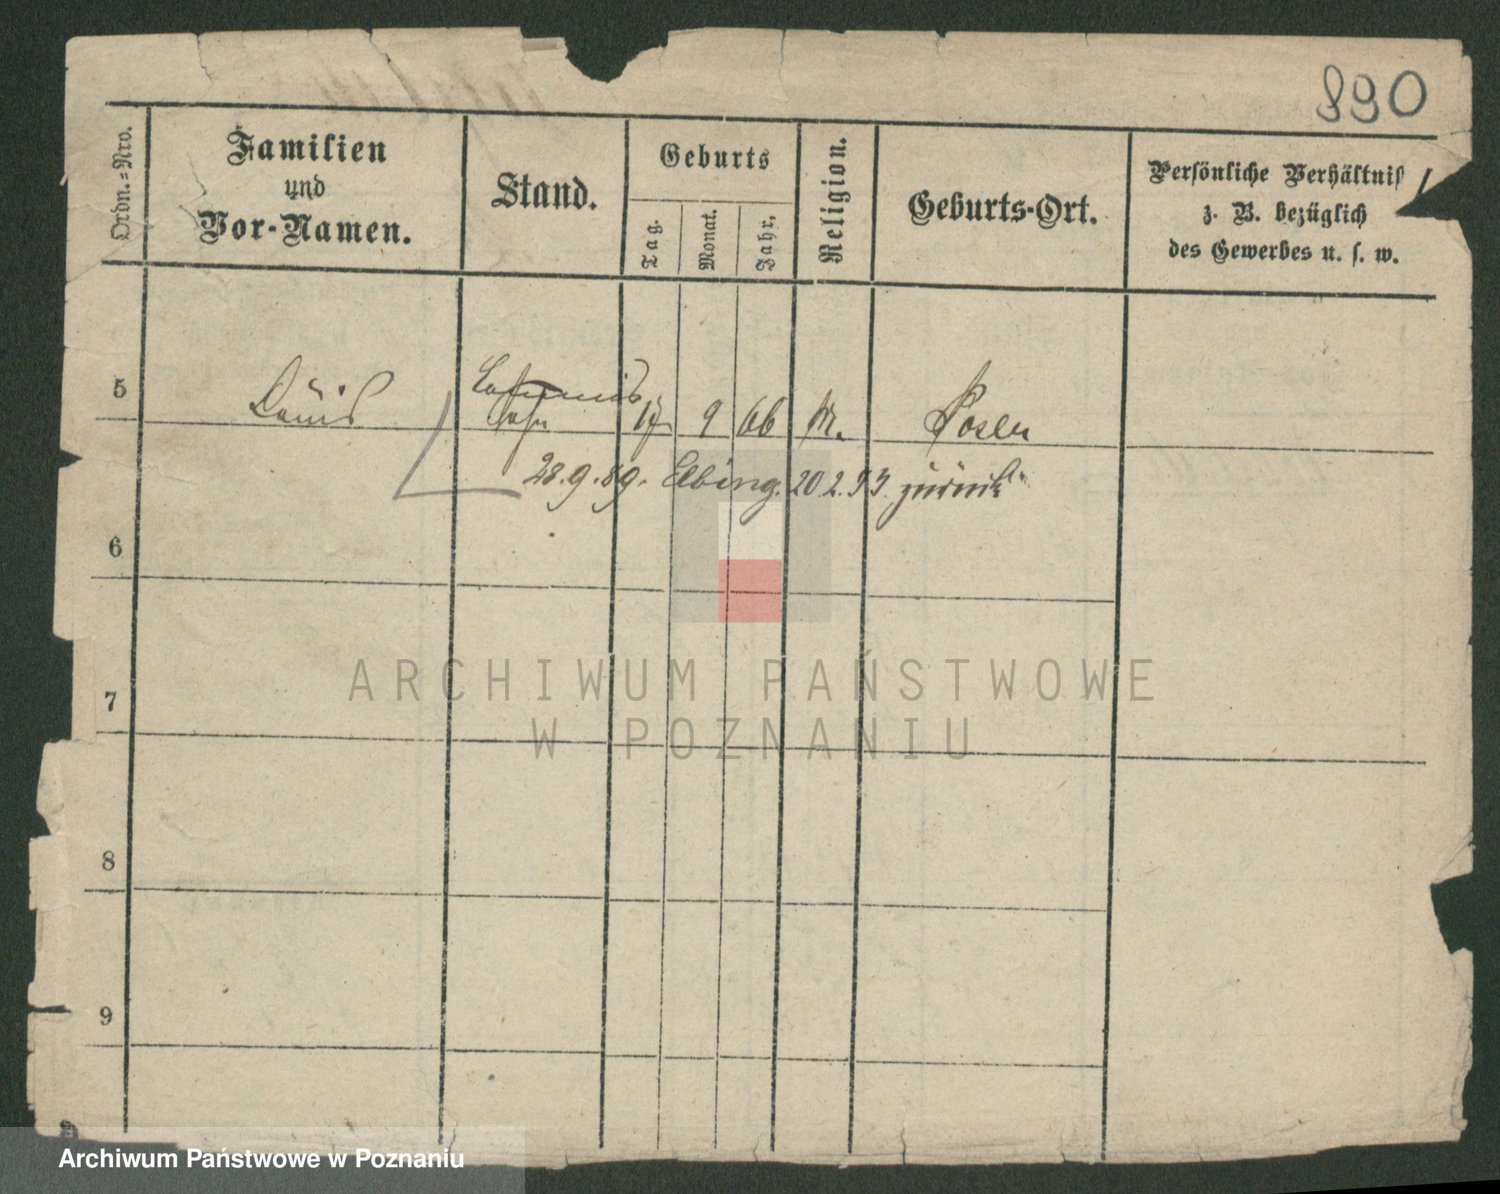 890
Ordn.=Nro.
Familien
und
Vor-Namen.
Stand.
Geburts
Tag.
Monat.
Jahr.
Religion.
Geburts-Ort.
Persönliche Verhältniß
z. B. bezüglich
des Gewerbes u. s. w.
5 Louis Sohn 17 9 66 M. Posen
28.9.89. Elbing. 20.2.93 zurück
6
7
8
9
ARCHIWUM PAŃSTWOWE
W POZNANIU
Archiwum Państwowe w Poznaniu